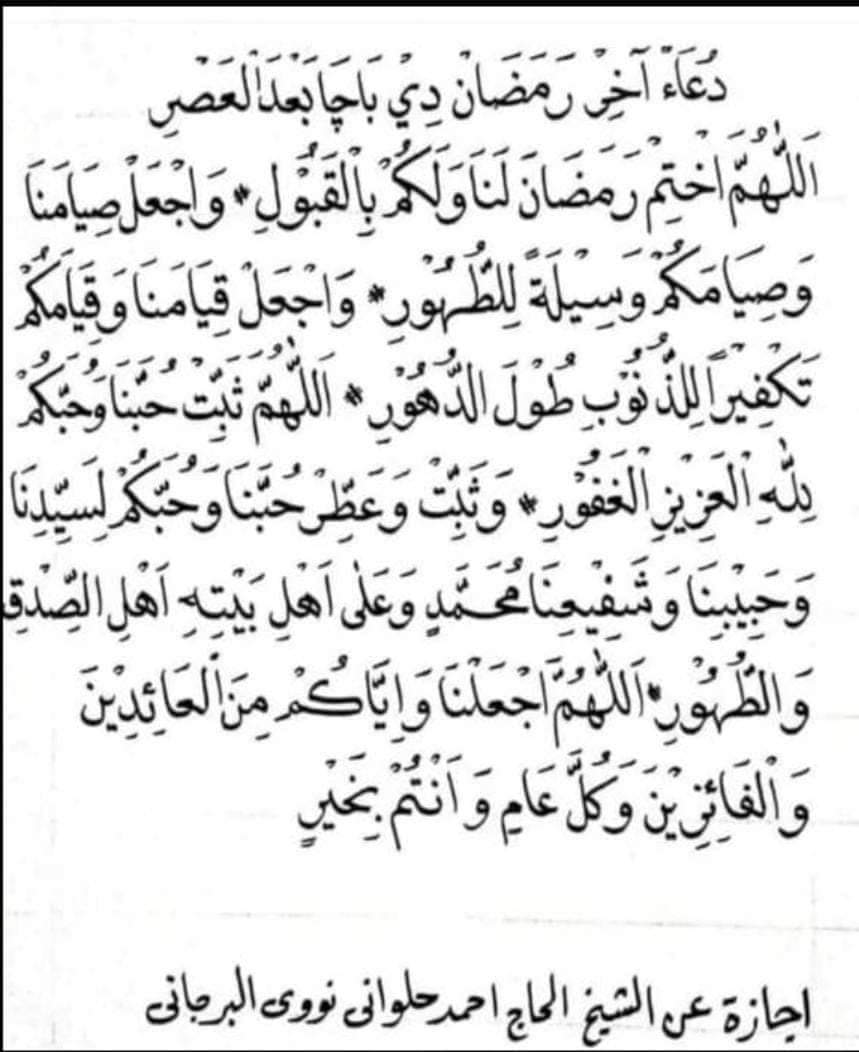 دُعَاءْ آخِرْ رَمَضَانْ دِيْ بَاچَا بَعْدَ الْعَصْرِ
اَللّٰهُمَّ اخْتِمْ رَمَضَانَ لَنَا وَلَكُمْ بِالْقَبُوْلِ * وَاجْعَلْ صِيَامَنَا
وَصِيَامَكُمْ وَسِيْلَةً لِلطُّهُوْرِ * وَاجْعَلْ قِيَامَنَا وَقِيَامَكُمْ
تَكْفِيْرًا لِلذُّنُوْبِ طُوْلَ الدُّهُوْرِ * اَللّٰهُمَّ ثَبِّتْ حُبَّنَا وَحُبَّكُمْ
لِلّٰهِ الْعَزِيْزِ الْغَفُوْرِ * وَثَبِّتْ وَعَطِّرْ حُبَّنَا وَحُبَّكُمْ لِسَيِّدِنَا
وَحَبِيْبِنَا وَشَفِيْعِنَا مُحَمَّدٍ وَعَلٰى اَهْلِ بَيْتِهِ اَهْلِ الصِّدْقِ
وَالطُّهُوْرِ * اَللّٰهُمَّ اجْعَلْنَا وَاِيَّاكُمْ مِنَ الْعَائِدِيْنَ
وَالْفَائِزِيْنَ وَكُلَّ عَامٍ وَاَنْتُمْ بِخَيْرٍ
اجازة عن الشيخ الحاج احمد حلوانى نووى البرجانى